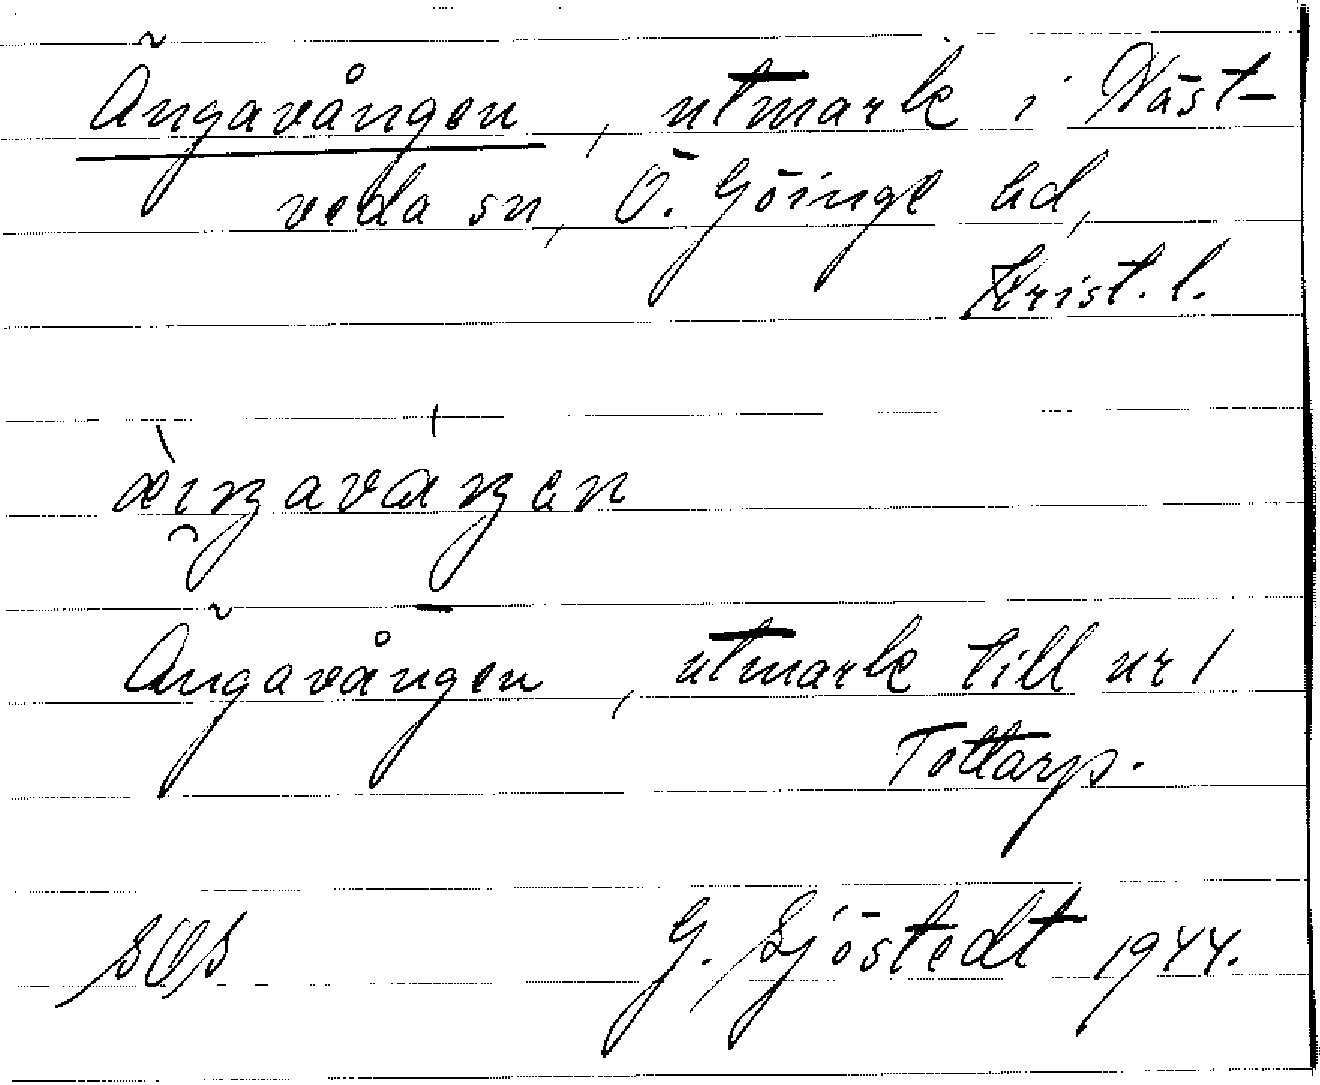 Ängavången, utmark i Näst-
veda sn, Ö. Göinge hd,
Krist. l.
Ängavången, utmark till nr 1
Tottarp.
SOS G. Sjöstedt 1944.